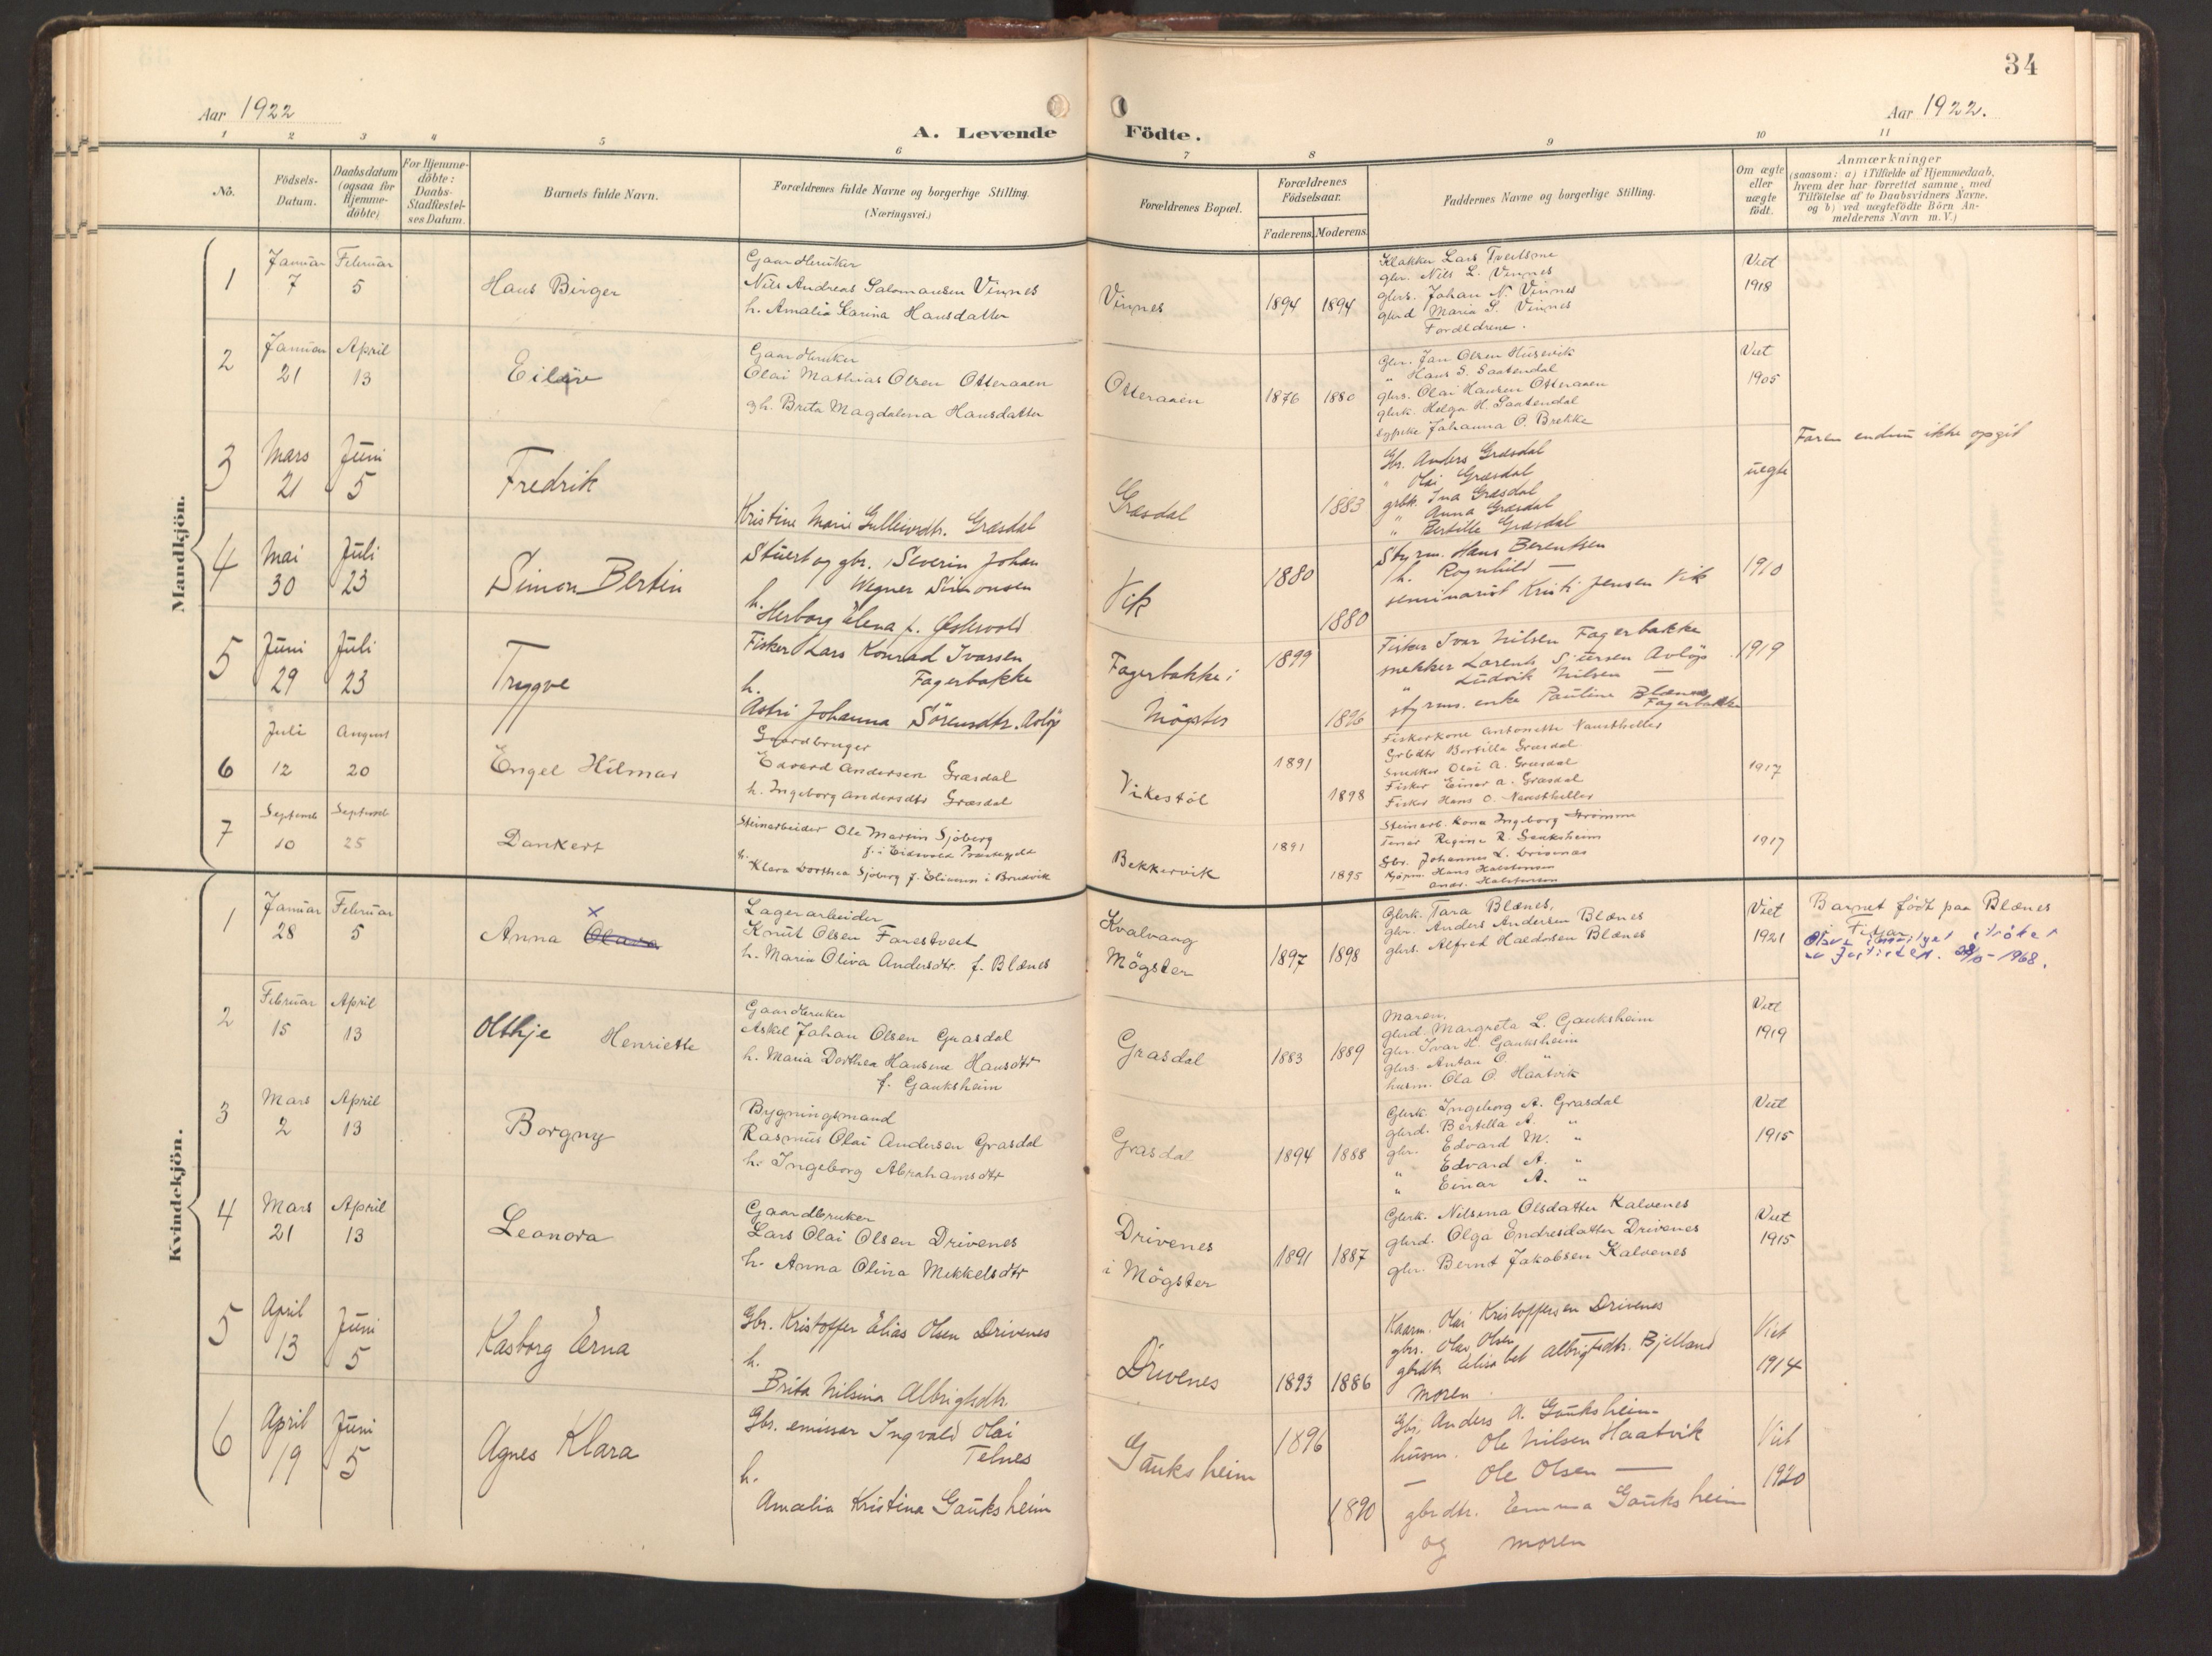 34
Aar 1922
Aar 1922.
A. Levende Födte.
1 2 3 4 5 6 7 8 9 10 11
No.
Födsels-Datum.
Daabsdatum (ogsaa for Hjemme-döbte)
For Hjemme-döbte: Daabs-Stadfæstel-ses Datum.
Barnets fulde Navn.
Forældrenes fulde Navne og borgerlige Stilling. (Næringsvei.)
Forældrenes Bopæl.
Forældrenes Födselsaar.
Faderens. Moderens.
Faddernes Navne og borgerlige Stilling.
Om ægte eller uægte födt.
Anmærkninger
(saasom: a) i Tilfælde af Hjemmedaab,
hvem der har forrettet samme, med
Tilföielse af to Daabsvidners Navne,
og b) ved uægtefödte Börn An-
melderens Navn m. V.)
Mandkjön.
1 Januar 7 Februar 5
Hans Birger
Gaardbruker
Nils Andreas Salomonsen Vinnes
h. Amalia Karina Hansdatter
Vinnes 1894 1894
Klokker Lars Tveitsme
gbr. Nils L. Vinnes
gbrs. Johan N. Vinnes
gbrd Maria S. Vinnes
Foreldrene.
Viet
1918
2 Januar 21 April 13
Eiliv
Gaardbruker
Olai Mathias Olsen Otteraaen
gh. Breta Magdalena Hansdatter
Otteraaen 1876 1880
gbr. Jan Olsen Husevik
" Hans S. Saatendal
gbrs. Olai Hansen Otteraaen
gbrk. Helga H. Saatendal
sypike Johanna O. Brekke
Viet
1905
3 Mars 21 Juni 5
Fredrik
Kristine Marie Gulleivsdtr. Græsdal
Græsdal 1883
Gbr. Anders Græsdal
" Olai Græsdal
grbk. Ina Græsdal
" Anna Græsdal
" Bertille Græsdal
uegte
Faren endnu ikke opgit
4 Mai 30 Juli 23
Simon Bertin
Stuert og gbr. Severin Johan
Wegner Simonsen
h. Herborg Elena f. Økland
Vik 1880 1880
Styrm. Hans Berentsen
h. Rognhild —
seminarist Krist. Jensen Vik
1910
5 Juni 29 Juli 23
Tryggve
Fisker Lars Konrad Ivarsen
Fagerbakke
h.
Astri Johanna Sörensdtr. Avlöp
Fagerbakke i
Mögster 1899 1896
Fisker Ivar Nilsen Fagerbakke
snekker Lorents Siversen Avlöp
" Ludvik Nilsen —
styrms. enke Pauline Blænes
Fagerbakke
1919
6 Juli 12 August 20
Engel Hilmar
Gaardbruger
Edvard Andersen Græsdal
h. Ingeborg Andersdtr Græsdal
Vikestöl 1891 1898
Fiskerkone Antonette Naustheller
Grbdtr Bertille Græsdal
Snedker Olai A. Græsdal
Fisker Einar A. Græsdal
Fisker Hans O. Naustheller
1917
7 Septemb 10 Septemb 25
Dankert
Steinarbeider Ole Martin Sjöberg
f. i Eidsvold Præstegjeld
h. Klara Dorthea Sjöberg f. Eliassen i Bruvik
Bekkervik 1891 1895
Steinarb. kone Ingeborg Strömme
Tener Regine R. Gauksheim
Gbr. Johannes L. Drivenes
Kjöpm. Hans Halstensen
— Andr. Halstensen
1917
Kvindekjön.
1 Januar 28 Februar 5
Anna Olava
x
Lagerarbeider
Knut Olsen Farestveit
h. Maria Oliva Andersdtr. f. Blænes
Kvalvaag
Mögster 1897 1898
Gbrk. Tara Blænes,
gbr. Anders Andersen Blænes
gbrs. Alfred Haldorsen Blænes
Viet
1921
Barnet födt paa Blænes
i Fitjar
Olava strøket
av Just.dep. 1968.
2 Februar 15 April 13
Olthje Henriette
Gaardbruker
Askel Johan Olsen Grasdal
h. Maria Dorthea Hansine Hansdtr
f. Gauksheim
Grasdal 1883 1889
Maren,
gbrd. Margreta L. Gauksheim
gbr. Ivar H. Gauksheim
gbrs. Anton O. "
husm. Ola O. Haatvik
Viet
1919
3 Mars 2 April 13
Borgny
Bygningsmand
Rasmus Olai Andersen Grasdal
h. Ingeborg Abrahamsdtr
Grasdal 1894 1888
Gbrk. Ingeborg A. Grasdal
gbrd. Bertella A. "
gbr. Edvard M. "
" Edvard A. "
" Einar A. "
Viet
1915
4 Mars 21 April 13
Leonora
Gaardbruker
Lars Olai Olsen Drivenes
h. Anna Olina Mikkelsdtr
Drivenes
i Mögster 1891 1887
Gbrk. Nilsina Olsdatter Kalvenes
gbrd. Olga Endresdatter Drivenes
gbr. Bernt Jakobsen Kalvenes
Viet
1915
5 April 13 Juni 5
Kasborg Erna
Gbr. Kristoffer Elias Olsen Drivenes
h.
Brita Nilsina Albrigtsdtr.
Drivenes 1893 1886
Kaarm. Olai Kristoffersen Drivenes
gbr. Olav Olsen —
gbrdtr. Elisabet Albrigtsdtr. Bjelland
moren
Viet
1914
6 April 19 Juni 5
Agnes Klara
Gbr. emissær Ingvald Olai
Telnes
h.
Amalia Kristina Gauksheim
Gauksheim 1896 1890
Gbr. Anders A. Gauksheim
husm. Ole Nilsen Haatvik
— Ole Olsen —
gbrdtr. Emma Gauksheim
og moren
Viet
1920